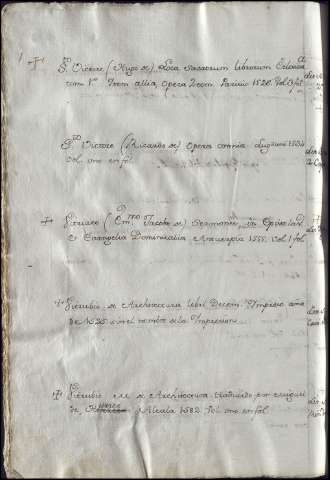 S.to Victore (Hugo de) Loca
tum 1.º Item allia opera Item Parisio 1526. Vol
S.to Victore (Ricardo de) Opera omnia Lugduno 1534
Vol. uno en fol.
Vitriaco (Em.mo Jacobo de) Sermones, in Epistolas
& Evangelia Dominicalia Antuerpia 1575. Vol. 1 fol
Vitrubio de Architectura Libri Decem. Impreso año
de 1523 sin el nombre de la Impresion
Vitrubio M. de Architectura traducido por
de, Alcala 1582. Vol. uno en fol.